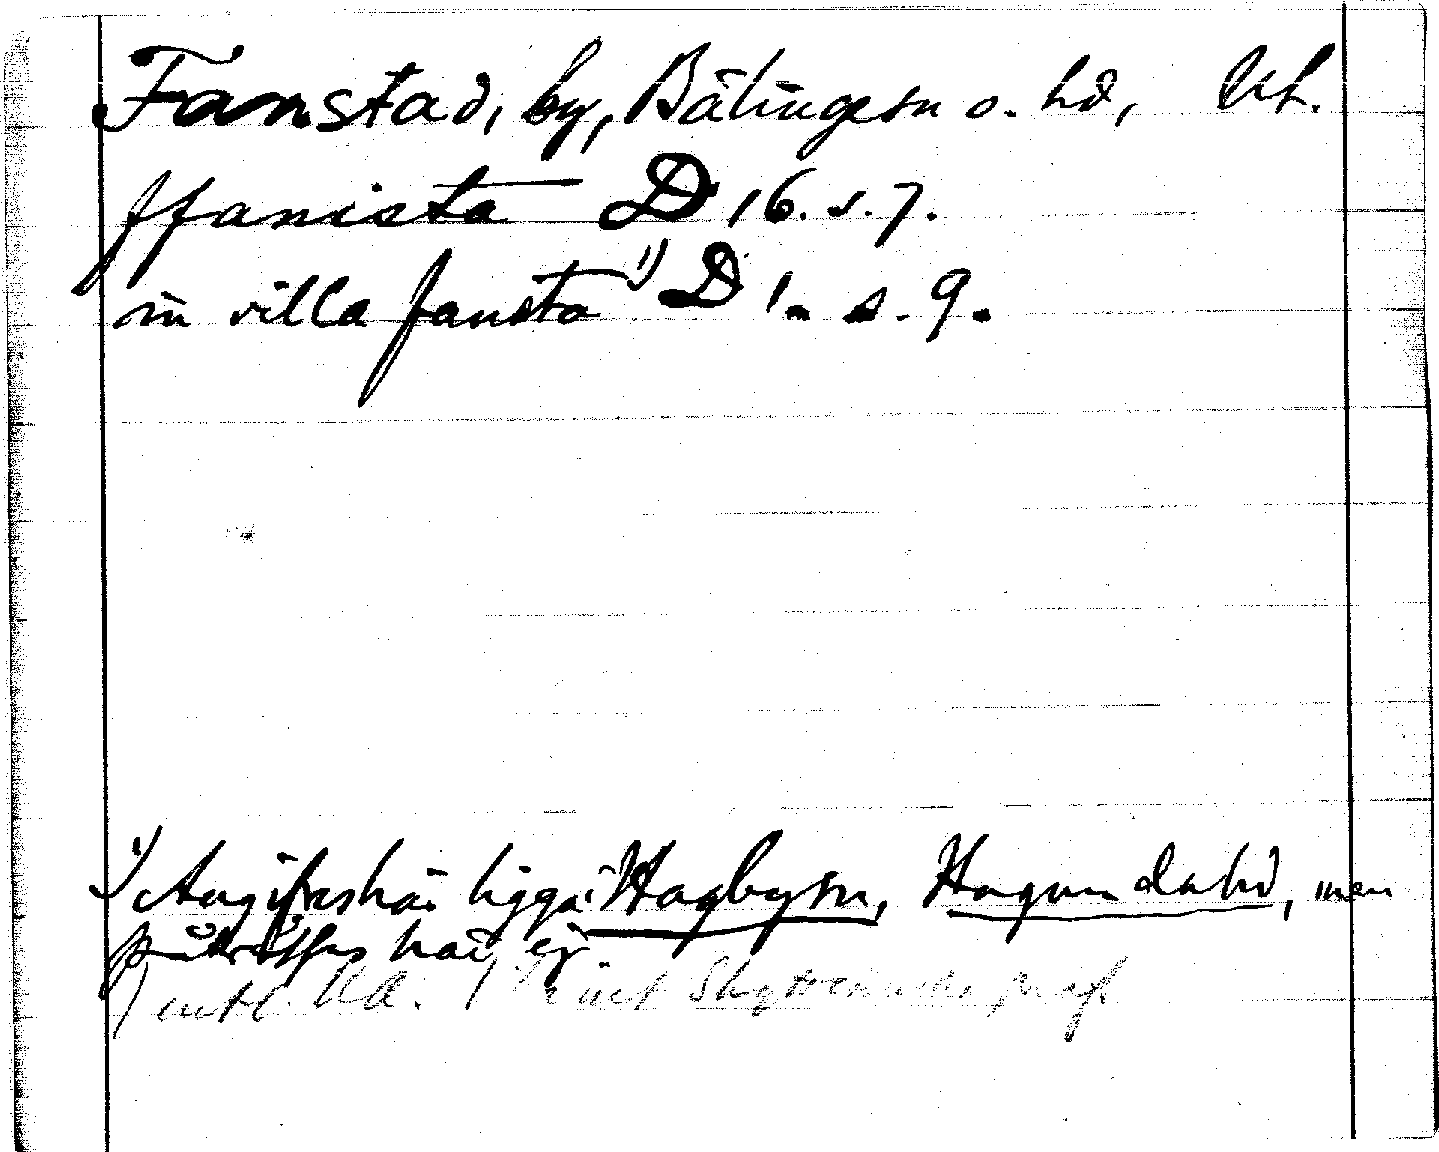 Fanstad, by, Bälingesn o. hd, Uh.
ffanista D 16. s. 7.
in villa fansta 1) D 1. s. 9.
1) Angifves här ligga i Hagbysn, Hagunda hd, men
påträffas här ej